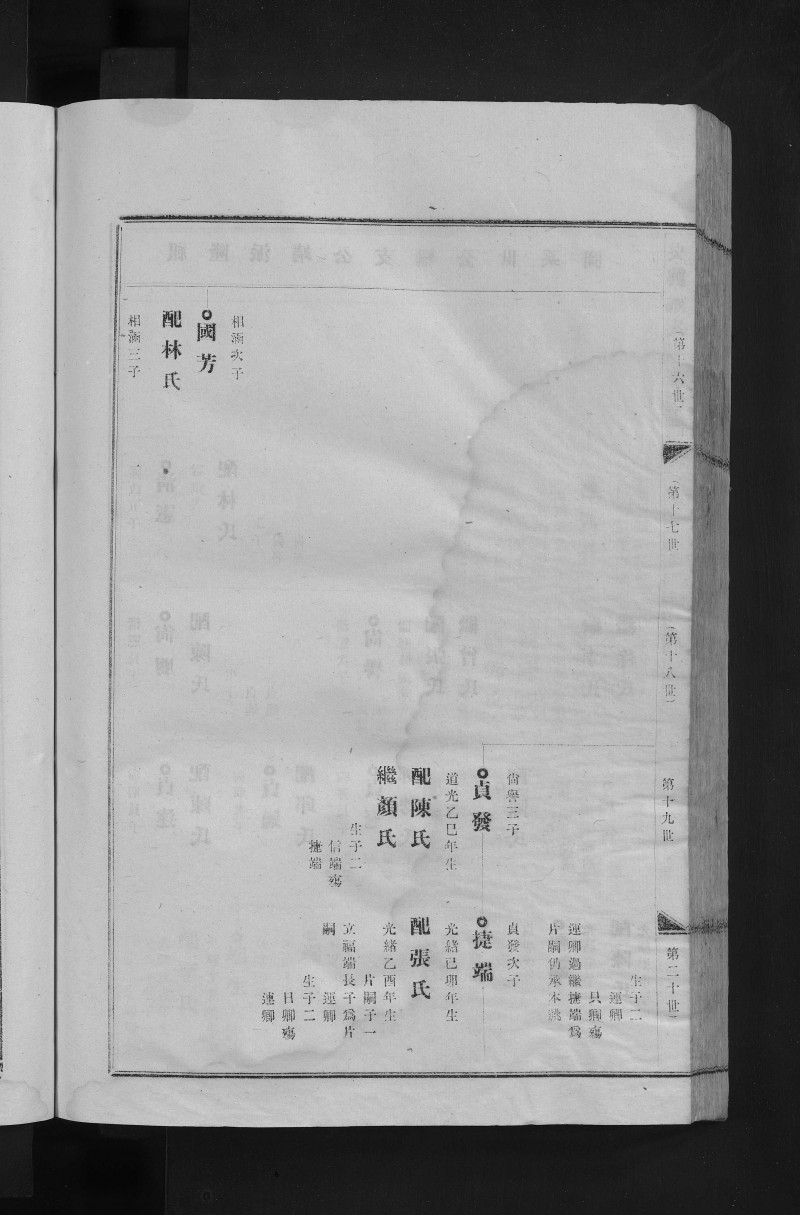 (第十六世)
(第十七世)
(第十八世)
第十九世
第二十世)
相涵次子
國芳
配林氏
相涵三子
尙譽三子
貞發
道光乙巳年生
配陳氏
繼顏氏
生子二
信端殤
捷端
生子二
運卿
貝卿殤
運卿過繼捷端爲
片嗣仍承本祧
貞發次子
捷端
光緒己卯年生
配張氏
光緒乙酉年生
片嗣子一
立福端長子爲片
嗣
運卿
生子二
日卿殤
連卿